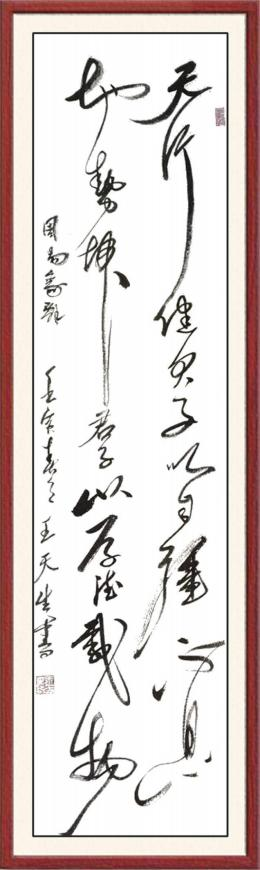 天行健君子以自强不息
地势坤君子以厚德载物
周易象辞 壬寅春之 王天生书